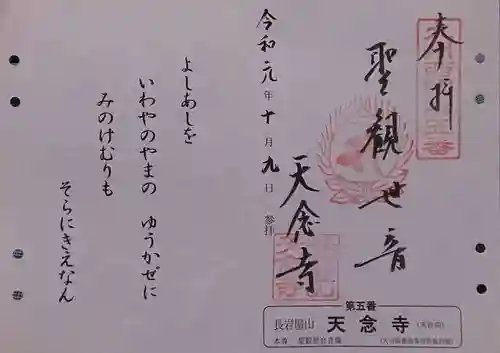 奉拝
聖観世音
天念寺
令和元年十月九日 参拝
よしあしを
いわやのやまの ゆうかぜに
みのけむりも
そらにきえなん
第五番
長岩屋山 天念寺
本尊